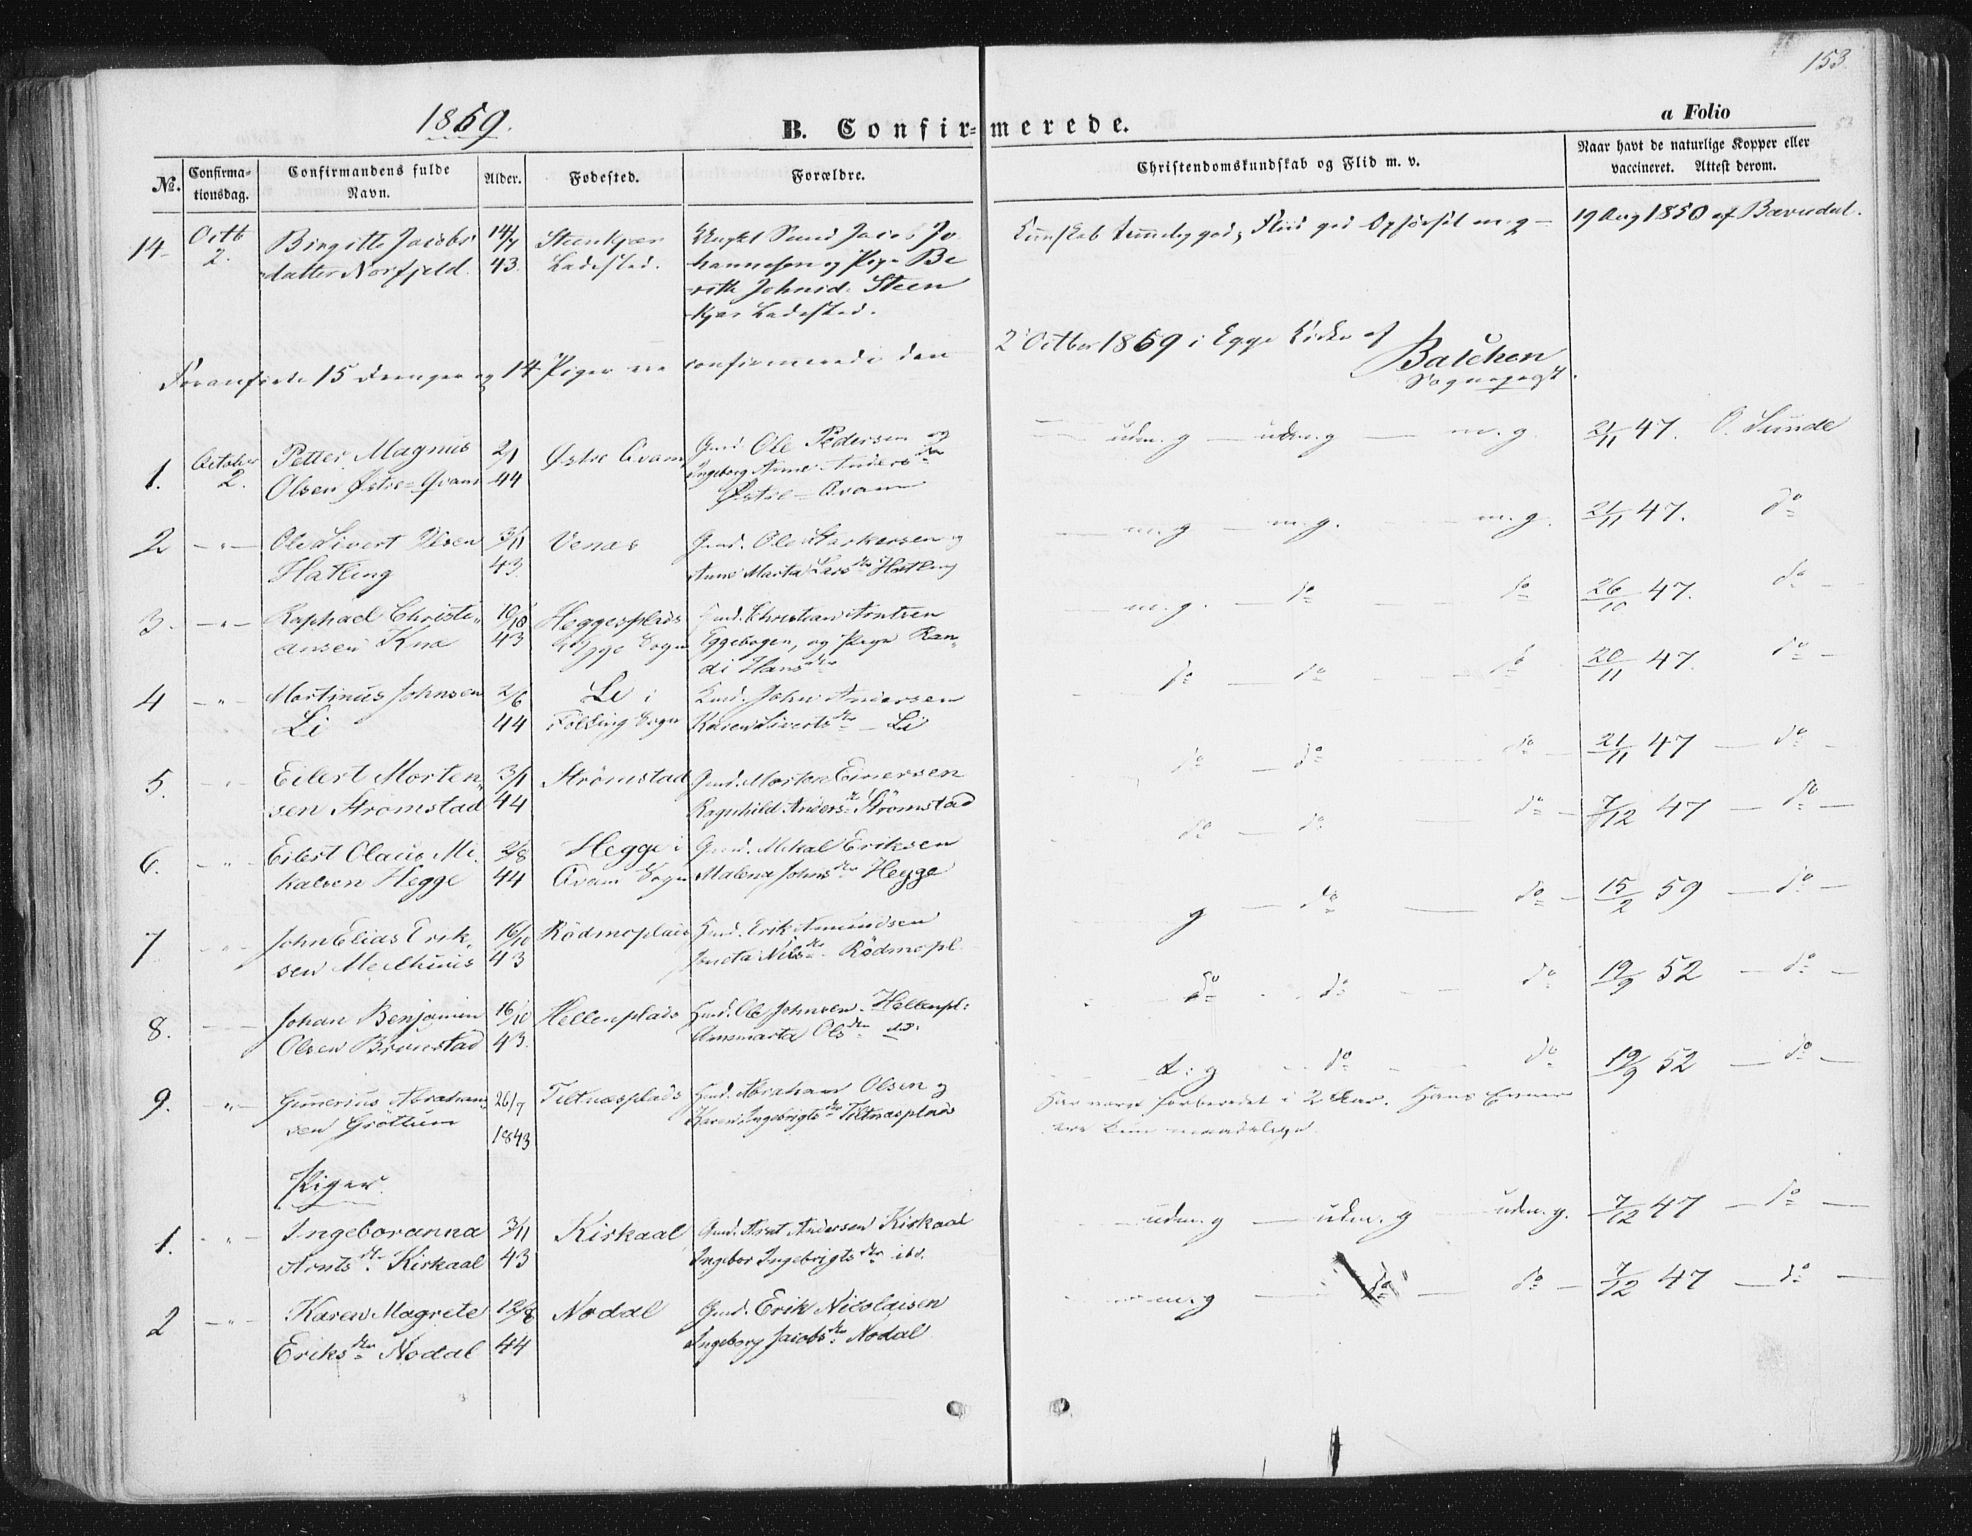 153
1859.
B. Confirmerede.
a Folio
No.
Confirmationsdag.
Confirmandens fulde Navn.
Alder.
Fødested.
Forældre.
Christendomskundskab og Flid m. v.
Naar havt de naturlige Kopper eller vaccineret. Attest derom.
14 Octb 2. Birgitte Jacobsdatter Norfjeld 14/7 43. Steenkjær Ladested. Ungkl Jacob Johannesen og Pige Berith Johnsd. Steenkjær Ladested. Kundskab temmelig god, Flid god Opførsel m. g 19 Aug 1850 af Bærndal.
Foranførte 15 Drenge og 14 Piger ere confirmerede den 2 Octbr 1859 i Egge Kirke af
Balchen
Sognepræst.
1. October 2. Petter Magnus Olsen Østre=Qvam 2/1 44 Østre Qvam Gmd Ole Pedersen og Ingeborg Anne Andersdtr Østre=Qvam udm. g — udm. g — m. g. 21/11 47. O. Sunde
2 — " — Ole Sivert Olsen Hatling 3/11 43. Venæs Gmd. Ole og Anne Marta Larsdtr Hatling m. g — m. g. — m. g. 21/11 47. do
3. — " — Raphael Christiansen Knæ 10/10 43 Heggesplads Egge Sogn Christian Arntsen Eggebogen, og Pige Randi Hansdtr m. g. — do — do 26/10 47. do
4 — " — Martinus Johnsen Li 2/6 44 Li i Følling Sogn John Andersen Karen Sivertsdtr — Li do — do — do 20/11 47. do
5. — " — Eilert Mortensen Strømstad 3/1 44 Strømstad Gmd. Morten Einersen Ragnhild Andersdtr Strømstad do — do — do 21/11 47 — do
6. — " — Eilert Olaus Mikalsen Hegge 2/8 44 Hegge i Qvam Sogn Gmd. Mikal Eriksen Malena Johnsdtr Hegge do — do — do 7/12 47 — do
7 — " — John Elias Eriksen Melhuus 16/10 43 Rødmoplads Hmd. Erik Amundsen Nilsdtr Rødmopl. g — do — do 15/2 59 — do
8. — " — Johan Benjamin Olsen Brønstad 16/10 43. Hellemplads Hmd. Ole Johnsen Hellempl: Annemarta Olsdtr do. do — do — do 19/9 52 — do
9. — " — Gunerius Abrahamsen Grøttum 26/7 1843 Tiltnæsplads Hmd. Abraham Olsen og Karen Ingebrigtsdtr Tiltnæsplads t: g — do — do 19/9 52 — do
Har været forberedet i 2 Aar. Hans Evner ere kun maadelige.
Piger.
1. — " — Ingeboranna Arntsdtr Kirkaal 3/11 43 Kirkaal Gmd. Arnt Andersen Kirkaal Ingebor Ingebrigtsdtr ibd. udm. g — udm. g — udm. g. 7/12 47 — do —
2 — " — Karen Magrete Eriksdtr Nodal 12/8 44 Nodal Gmd. Erik Nicolaisen Ingeborg Jacobsdtr Nodal m. g — do — do — 7/12 47 — do —